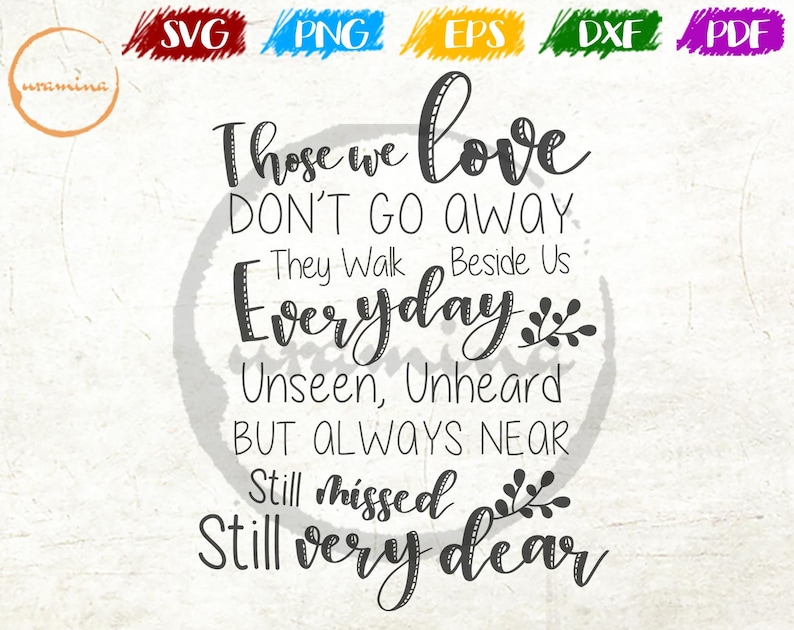 SVG PNG EPS DXF PDF
uramina
Those we love
DON'T GO AWAY
They Walk Beside Us
Everyday
uramina
Unseen, Unheard
BUT ALWAYS NEAR
Still missed
Still very dear